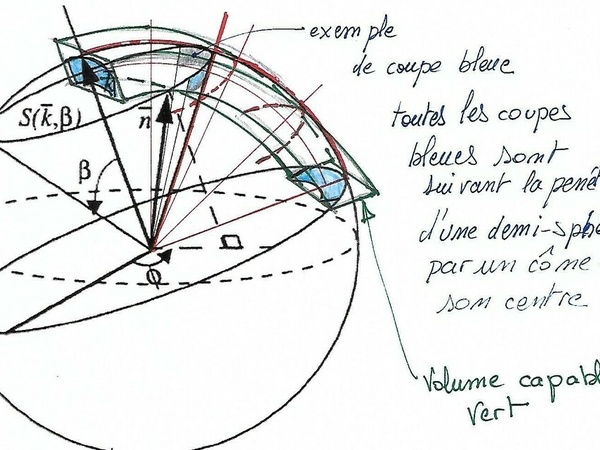 exemple
de coupe bleue
toutes les coupes
bleues sont
suivant la
d'une demi-sph
par un cône
son centre
Volume capabl
vert
S(k̄,β)
n̄
β
Φ